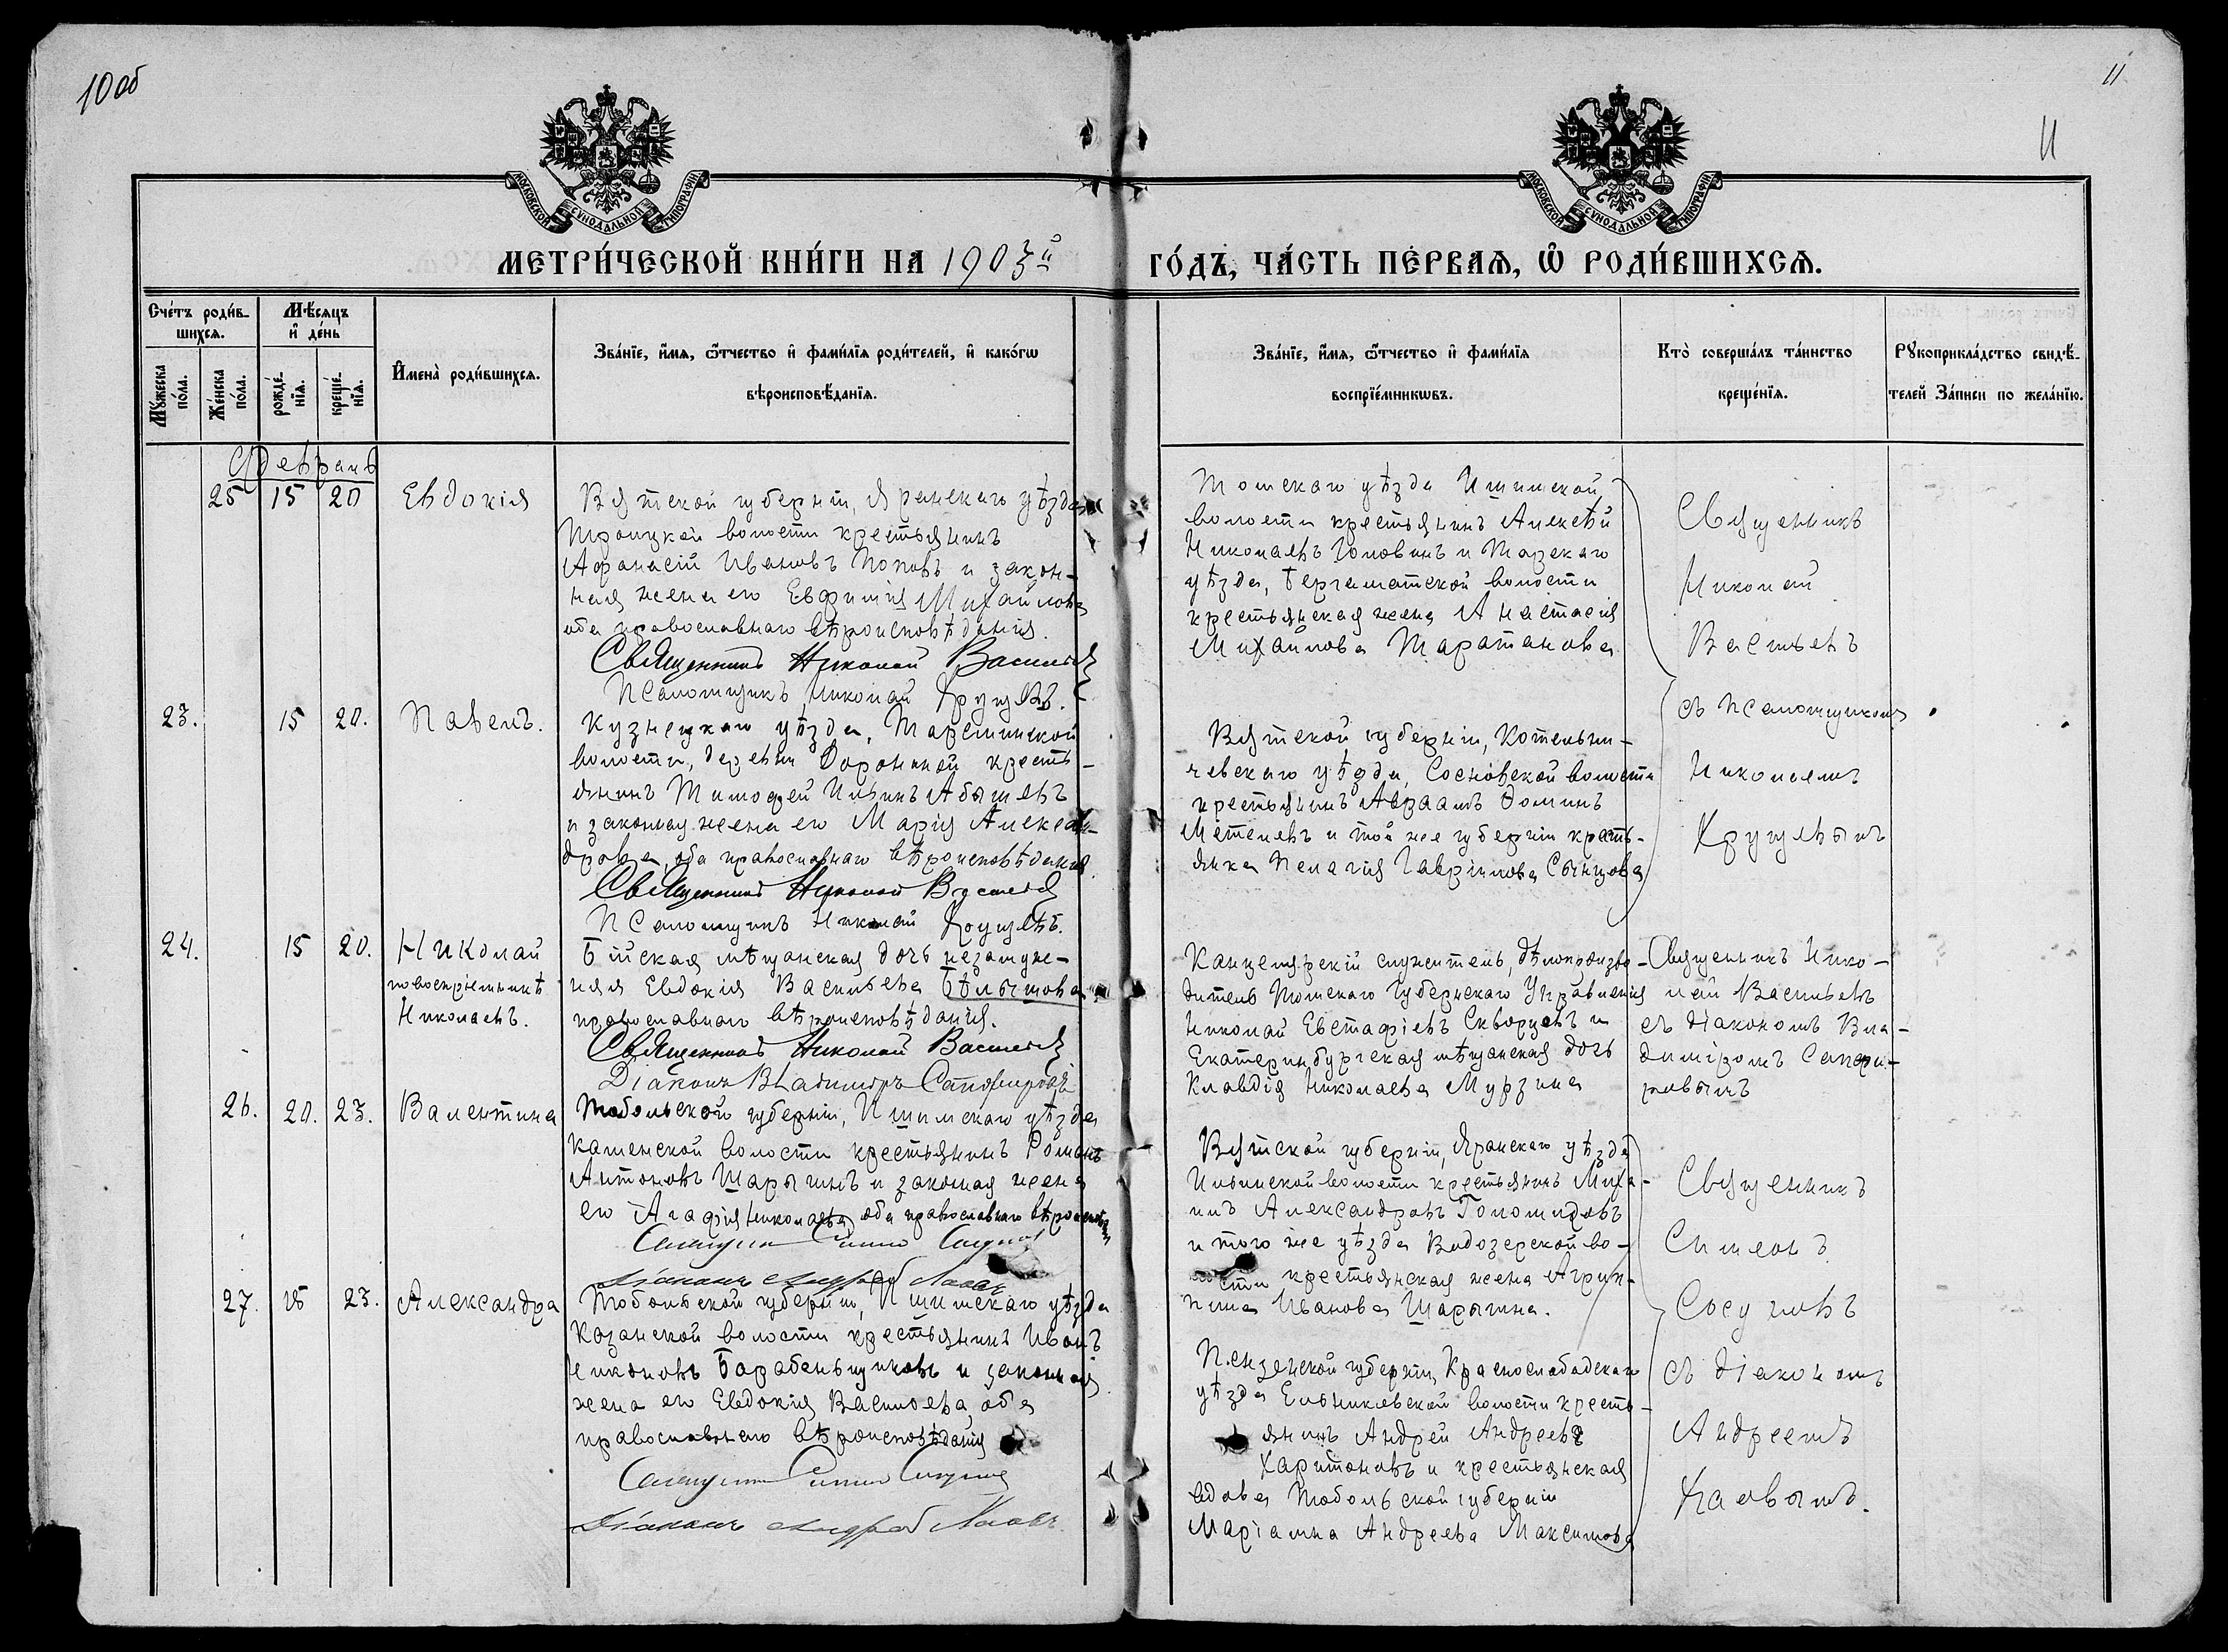 10 об
11
11
МОСКОВСКОЙ СѴНОДАЛЬНОЙ ТИПОГРАФІИ
МОСКОВСКОЙ СѴНОДАЛЬНОЙ ТИПОГРАФІИ
МЕТРИ́ЧЕСКОЙ КНИ́ГИ НА 1903й ГО́ДЪ, ЧА́СТЬ ПЕ́РВАѦ, Ѡ РОДИ́ВШИХСѦ.
Сче́тъ роди́в-
шихсѧ.
Мꙋ́жеска по́ла.
Же́нска по́ла.
Мѣ́сѧцъ
и де́нь
рожде́-нїѧ.
креще́-нїѧ.
Имена̀ роди́вшихсѧ.
Зва́нїе, и́мѧ, ѻ́тчество и фами́лїѧ роди́телей, и како́гѡ
вѣроисповѣ́данїѧ.
Зва́нїе, и́мѧ, ѻ́тчество и фами́лїѧ
воспрїе́мникѡвъ.
Кто̀ соверша́лъ та́инство
креще́нїѧ.
Рꙋкоприкла́дство свидѣ́-
телей За́писи по жела́нїю.
Февраль
25 15 20 Евдокія
Вятской губерніи, Яранскаго уѣзда
Троицкой волости крестьянинъ
Афанасій Ивановъ Поповъ и закон-
ная жена его Евфимія Михайлова
оба православнаго вѣроисповѣданія.
Священникъ Николай Васильевъ
Псаломщикъ Николай Хрущевъ.
Томскаго уѣзда Ишимской
волости крестьянинъ Алексѣй
Николаевъ Головинъ и Тарскаго
уѣзда, Бергаматской волости
крестьянская жена Анастасія
Михайлова Таратанова
Священникъ
Николай
Васильевъ
съ псаломщикомъ
Николаемъ
Хрущевымъ
23. 15 20. Павелъ.
Кузнецкаго уѣзда, Тарсминской
волости, деревни Дорониной кресть-
янинъ Тимофей Ильинъ Абышевъ
и законная жена его Марія Алексан-
дрова, оба православнаго вѣроисповѣданія
Священникъ Николай Васильевъ
Псаломщикъ Николай Хрущевъ.
Вятской губерніи, Котельни-
чевскаго уѣзда, Сосновской волости
крестьянинъ Авраамъ Ѳоминъ
Метелевъ и той же губерніи кресть-
янка Пелагія Гавріилова Сынцова
24. 15 20. Николай
по воспріемникѣ
Николаевъ.
Бійская мѣщанская дочь незамуж-
няя Евдокія Васильева Бѣлышова
православнаго вѣроисповѣданія.
Священникъ Николай Васильевъ
Діаконъ Владимиръ Сапфировъ
Канцелярскій служитель, дѣлопроизво-
дитель Томскаго Губернскаго Управленія
Николай Евстафіевъ Скворцовъ и
Екатеринбургская мѣщанская дочь
Клавдія Николаева Мурзина
Священникъ Нико-
лай Васильевъ
съ діакономъ Вла-
диміромъ Сапфи-
ровымъ
26. 20. 23. Валентина
Тобольской губерніи, Ишимскаго уѣзда
Каменской волости крестьянинъ Романъ
Антоновъ Шарыгинъ и законная жена
его Агафія Николаева, оба православнаго вѣроисповѣд.
Священникъ Симеонъ Сосуновъ
Діаконъ Андрей
Вятской губерніи, Яранскаго уѣзда
Ильинской волости крестьянинъ Миха-
илъ Александровъ Голомидовъ
и того же уѣзда Водозерской во-
лости крестьянская жена Агрип-
пина Иванова Шарыгина.
Священникъ
Симеонъ
Сосуновъ
съ діакономъ
Андреемъ
27. 18 23. Александра
Тобольской губерніи, Ишимскаго уѣзда
Казанской волости крестьянинъ Иванъ
Никоновъ Барабеньщиковъ и законная
жена его Евдокія Васильева, оба
православнаго вѣроисповѣданія
Священникъ Симеонъ Сосуновъ
Діаконъ Андрей
Пензенской губерніи, Краснослободскаго
уѣзда Ельниковской волости кресть-
янинъ Андрей Андреевъ
Харитоновъ и крестьянская
вдова Тобольской губерніи
Маріамна Андреева Максимова